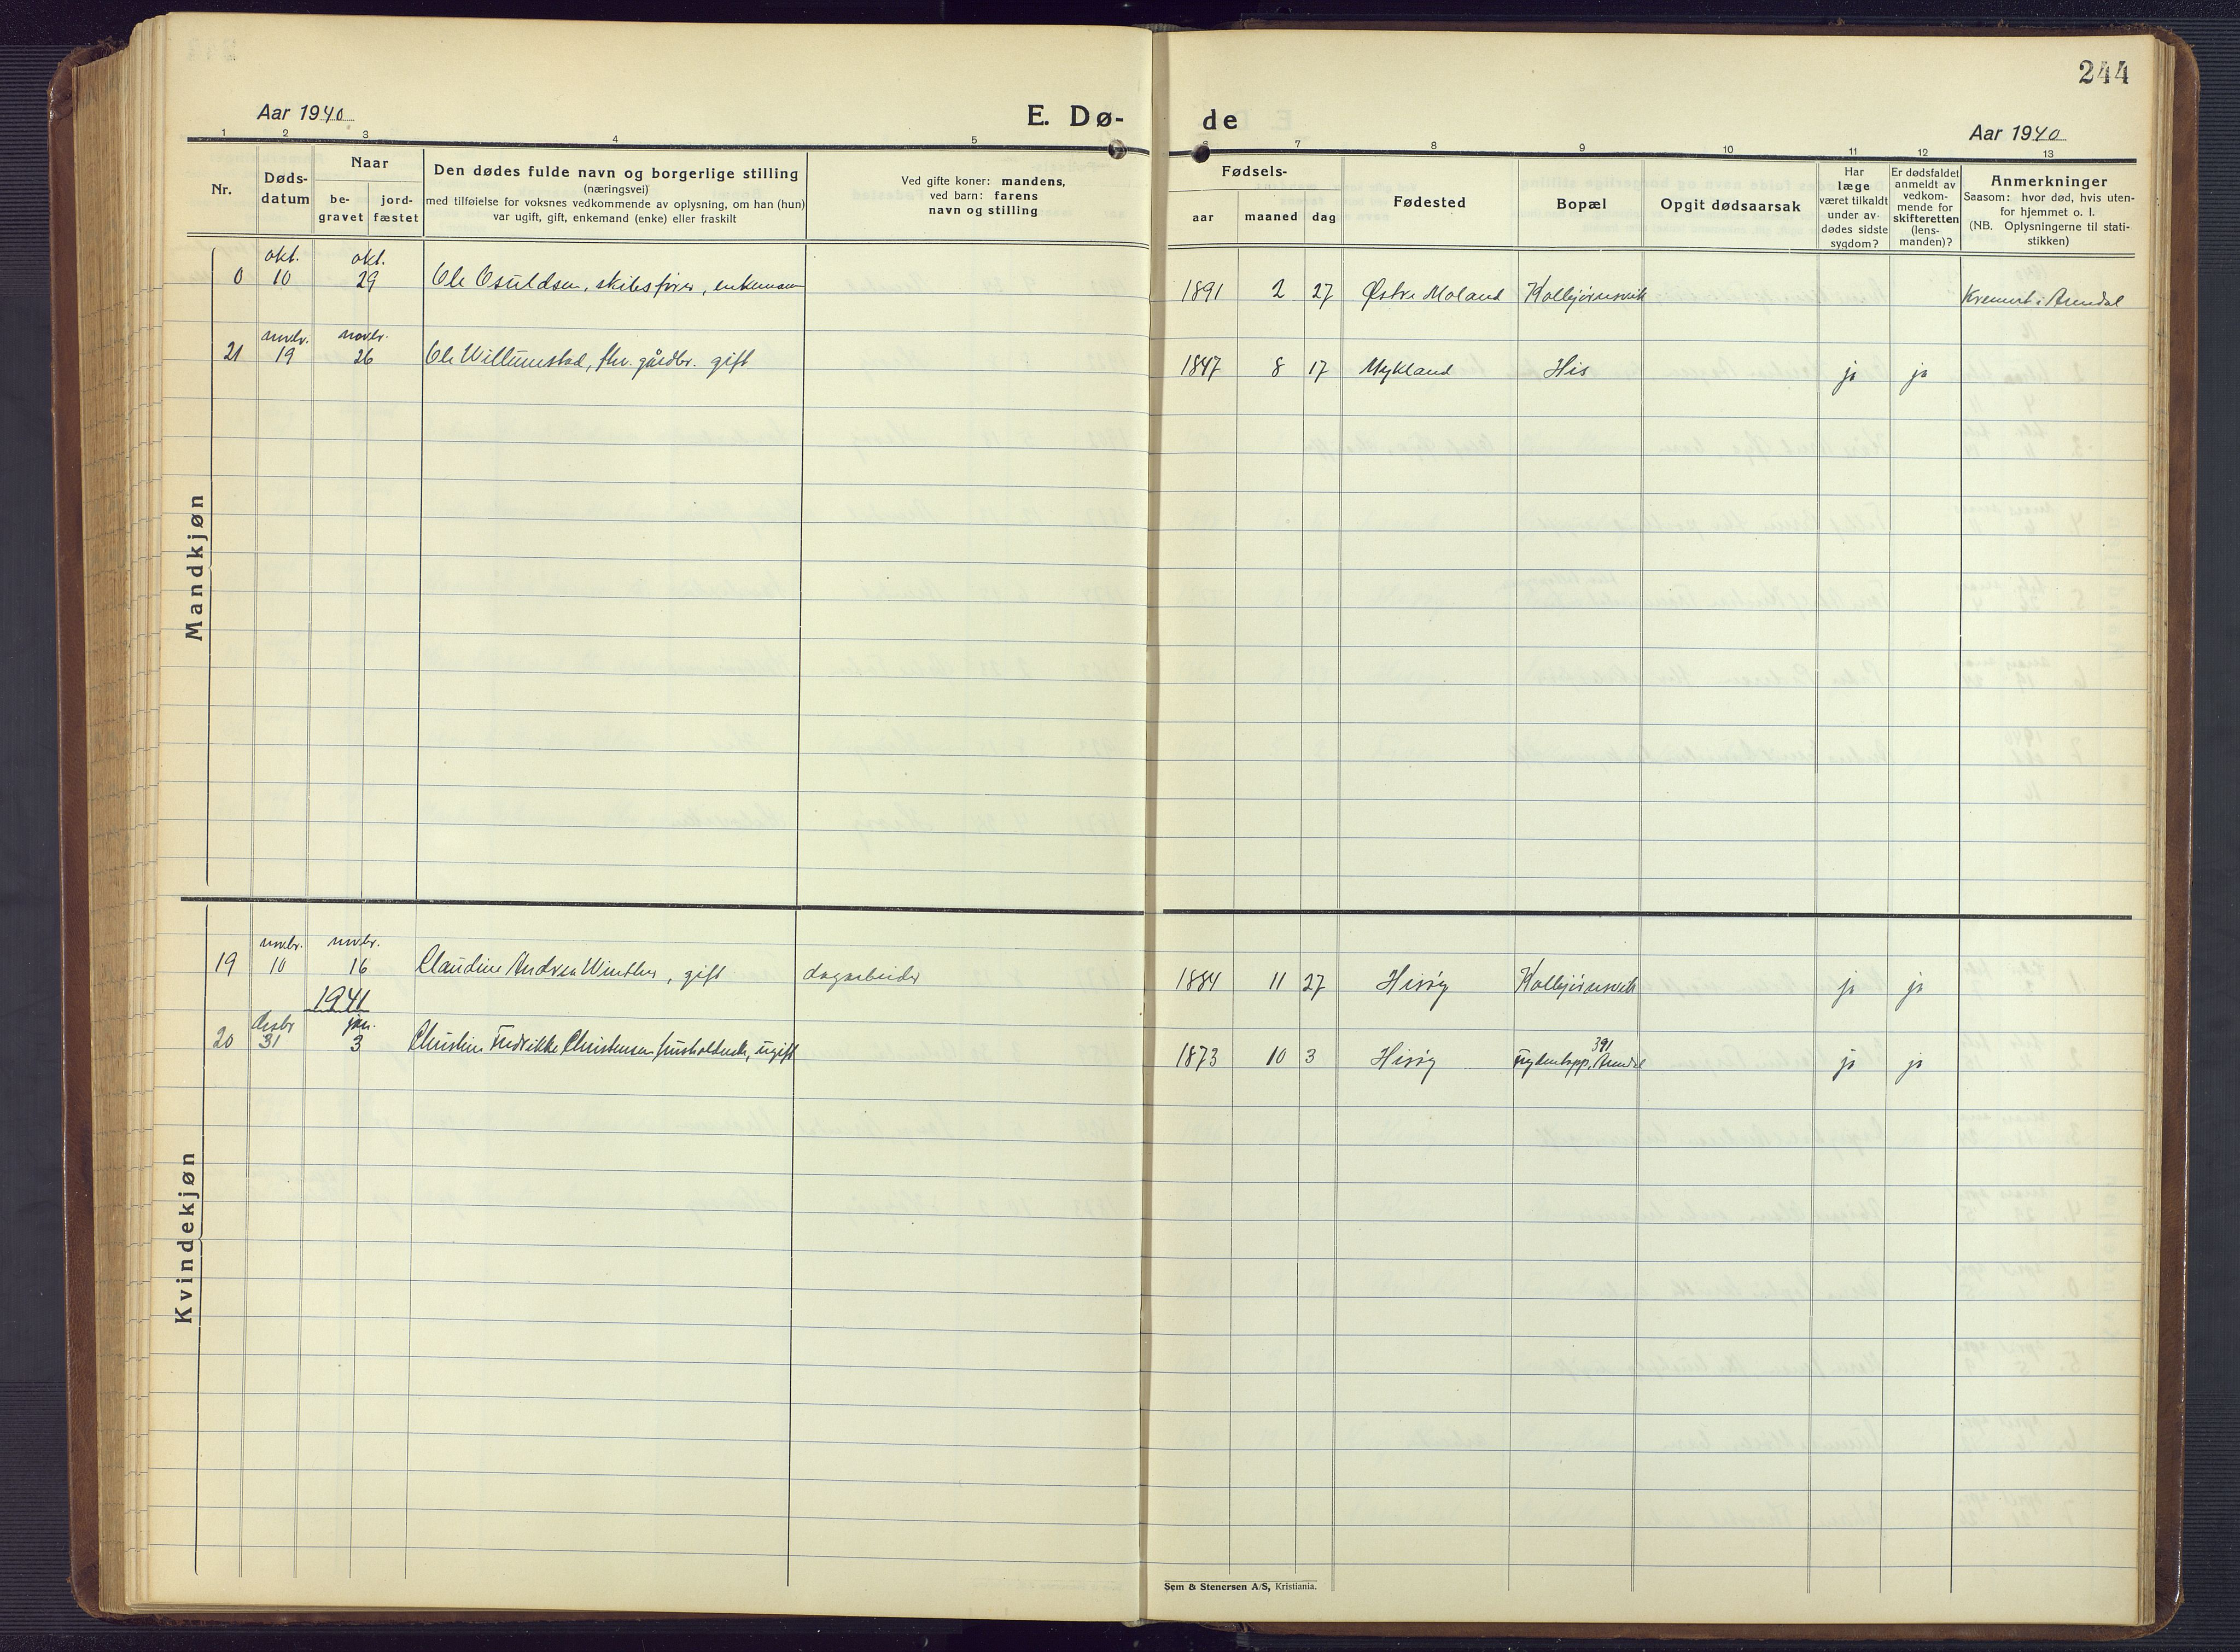 244
Aar 1940
E. Dø-
de
Aar 1940
1 2 3 4 5 6 7 8 9 10 11 12 13
Nr.
Døds-
datum
Naar
be-
gravet
jord-
fæstet
Den dødes fulde navn og borgerlige stilling
(næringsvei)
med tilføielse for voksnes vedkommende av oplysning, om han (hun)
var ugift, gift, enkemand (enke) eller fraskilt
Ved gifte koner: mandens,
ved barn: farens
navn og stilling
Fødsels-
aar
maaned
dag
Fødested
Bopæl
Opgit dødsaarsak
Har
læge
været tilkaldt
under av-
dødes sidste
sygdom?
Er dødsfaldet
anmeldt av
vedkom-
mende for
skifteretten
(lens-
manden)?
Anmerkninger
Saasom: hvor død, hvis uten-
for hjemmet o. l.
(NB. Oplysningerne til stati-
stikken)
Mandkjøn
okt. okt.
0 10 29 Ole Osuldsen, skibsfører, enkemann 1891 2 27 Østre Moland Kolbjørnsvik Kremert i Arendal
novbr. novbr.
21 19 26 Ole Willumstad, fhv. gårdbr. gift 1847 8 17 Mykland His ja ja
Kvindekjøn
novbr. novbr.
19 10 16 Claudine Andrea Winther, gift dagarbeider 1884 11 27 Hisøy Kolbjørnsvik ja ja
1941
desbr jan.
391
20 31 3 Christine Fredrikke Christensen, husholdersk, ugift 1873 10 3 Hisøy Arendal ja ja
Sem & Stenersen A/S, Kristiania.